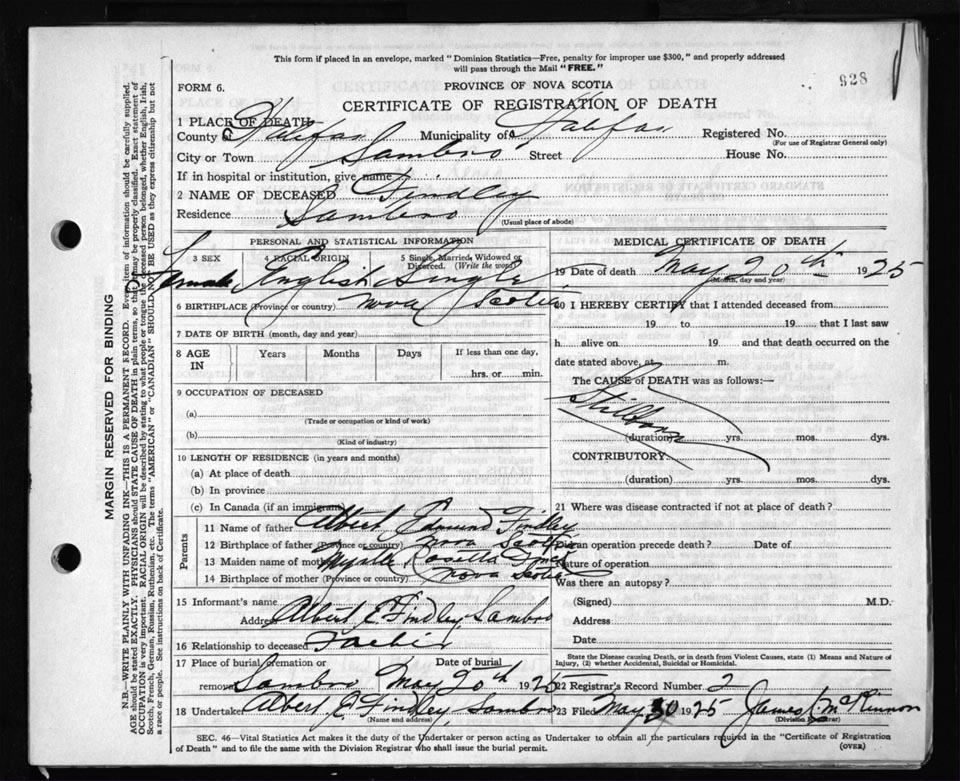 This form if placed in an envelope, marked "Dominion Statistics—Free, penalty for improper use $300," and properly addressed
will pass through the Mail "FREE."
928
FORM 6.
PROVINCE OF NOVA SCOTIA
CERTIFICATE OF REGISTRATION OF DEATH
1 PLACE OF DEATH—
County of Halifax Municipality of Halifax Registered No.
(For use of Registrar General only)
City or Town Sambro Street House No.
If in hospital or institution, give name
2 NAME OF DECEASED Findley
Residence Sambro
(Usual place of abode)
PERSONAL AND STATISTICAL INFORMATION
3 SEX
Female
4 RACIAL ORIGIN
English
5 Single, Married, Widowed or Divorced. (Write the word)
Single
6 BIRTHPLACE (Province or country) Nova Scotia
7 DATE OF BIRTH (month, day and year)
8 AGE IN
Years Months Days If less than one day,
hrs. or min.
9 OCCUPATION OF DECEASED
(a)
(Trade or occupation or kind of work)
(b)
(Kind of industry)
10 LENGTH OF RESIDENCE (in years and months)
(a) At place of death
(b) In province
(c) In Canada (if an immigrant)
Parents
11 Name of father Albert Edmund Findley
12 Birthplace of father (Province or country) Nova Scotia
13 Maiden name of mother Myrtle
14 Birthplace of mother (Province or country) Nova Scotia
15 Informant's name
Address Albert E Findley Sambro
16 Relationship to deceased Father
17 Place of burial, cremation or Date of burial
removal Sambro May 20th 1925
18 Undertaker Albert E Findley, Sambro
(Name and address)
MEDICAL CERTIFICATE OF DEATH
19 Date of death May 20th 1925
(Month, day and year)
20 I HEREBY CERTIFY that I attended deceased from
19 to 19 that I last saw
h alive on 19 and that death occurred on the
date stated above, at m.
The CAUSE of DEATH was as follows:—
Stillborn
(duration) yrs. mos. dys.
CONTRIBUTORY.
(duration) yrs. mos. dys.
21 Where was disease contracted if not at place of death?
Did an operation precede death? Date of
Nature of operation
Was there an autopsy?
(Signed) M.D.
Address
Date
State the Disease causing Death, or in death from Violent Causes, state (1) Means and Nature of
Injury, (2) whether Accidental, Suicidal or Homicidal.
22 Registrar's Record Number 2
23 Filed May 30 1925 James McKinnon
(Division Registrar)
SEC. 46—Vital Statistics Act makes it the duty of the Undertaker or person acting as Undertaker to obtain all the particulars required in the "Certificate of Registration
of Death" and to file the same with the Division Registrar who shall issue the burial permit.
(OVER)
MARGIN RESERVED FOR BINDING
N.B.—WRITE PLAINLY WITH UNFADING INK—THIS IS A PERMANENT RECORD. Every item of information should be carefully supplied.
AGE should be stated EXACTLY. PHYSICIANS should STATE CAUSE OF DEATH in plain terms, so that it may be properly classified. Exact statement of
OCCUPATION is very important. RACIAL ORIGIN will be described by stating to what people or tongue the deceased person belonged, whether English, Irish,
Scotch, French, German, Russian, Ruthenian, etc. The terms "AMERICAN" or "CANADIAN" SHOULD NOT BE USED as they express citizenship but not
a race or people. See instructions on back of Certificate.